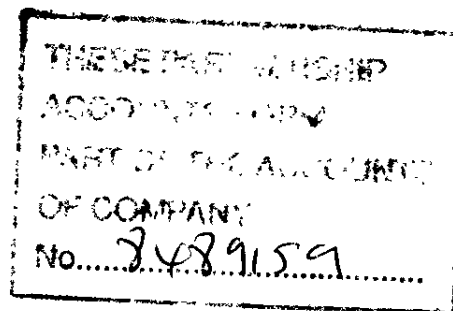 THESE PARTNERSHIP
ACCOUNTS FORM
PART OF THE ACCOUNTS
OF COMPANY
No. 8489159